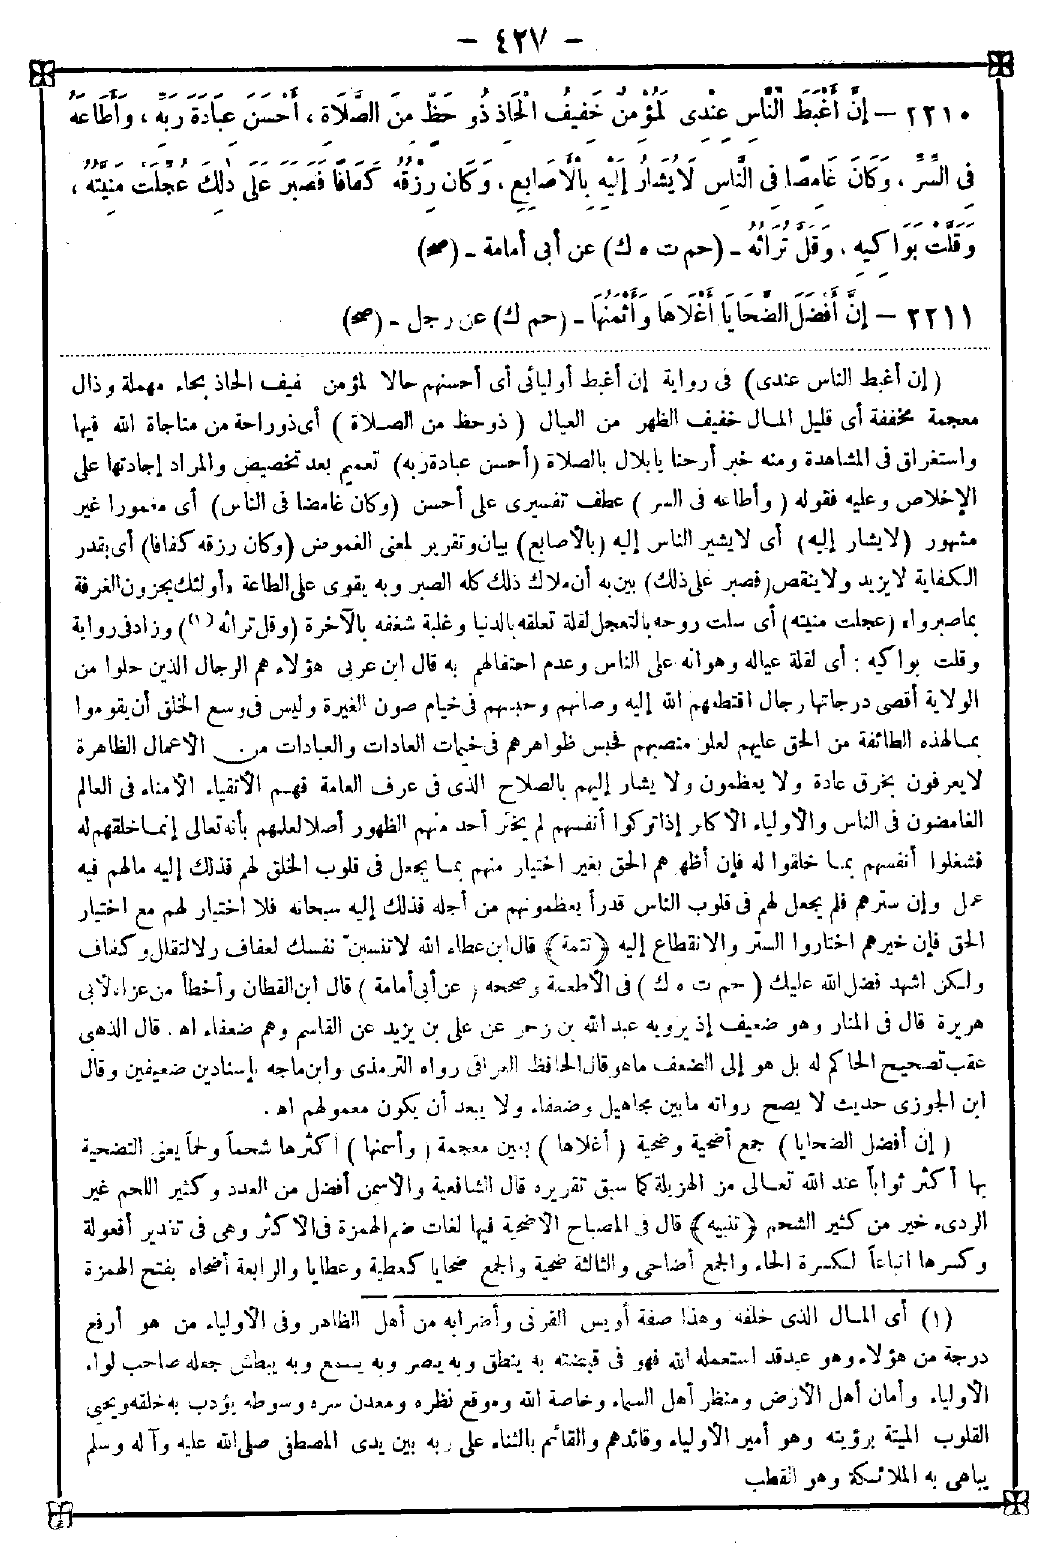 - ٤٢٧ -
٢٢١٠ - إِنَّ أَغْبَطَ النَّاسِ عِنْدِى لَمُؤْمِنٌ خَفِيفُ الْحَاذِ ذُو حَظٍّ مِنَ الصَّلَاةِ ، أَحْسَنَ عِبَادَةَ رَبِّهِ ، وَأَطَاعَهُ
فِى السِّرِّ ، وَكَانَ غَامِضًا فِى النَّاسِ لَا يُشَارُ إِلَيْهِ بِالْأَصَابِعِ ، وَكَانَ رِزْقُهُ كَفَافًا فَصَبَرَ عَلَى ذٰلِكَ عُجِّلَتْ مَنِيَّتُهُ ،
وَقَلَّتْ بَوَاكِيهِ ، وَقَلَّ تُرَاثُهُ - (حم ت ه ك) عن أبى أمامة - (صح)
٢٢١١ - إِنَّ أَفْضَلَ الضَّحَايَا أَغْلَاهَا وَأَثْمَنُهَا - (حم ك) عن رجل - (صح)
(إن أغبط الناس عندى) فى رواية إن أغبط أوليائى أى أحسنهم حالا لمؤمن خفيف الحاذ بحاء مهملة وذال
معجمة مخففة أى قليل المال خفيف الظهر من العيال (ذو حظ من الصلاة) أى ذو راحة من مناجاة الله فيها
واستغراق فى المشاهدة ومنه خبر أرحنا يا بلال بالصلاة (أحسن عبادة ربه) تعميم بعد تخصيص والمراد إجادتها على
الإخلاص وعليه فقوله (وأطاعه فى السر) عطف تفسيرى على أحسن (وكان غامضا فى الناس) أى مغمورا غير
مشهور (لا يشار إليه) أى لا يشير الناس إليه (بالأصابع) بيان وتقرير لمعنى الغموض (وكان رزقه كفافا) أى بقدر
الكفاية لا يزيد ولا ينقص (فصبر على ذلك) بين به أن ملاك ذلك كله الصبر وبه يقوى على الطاعة «أولئك يجزون الغرفة
بما صبروا» (عجلت منيته) أى سلت روحه بالتعجل لقلة تعلقه بالدنيا وغلبة شغفه بالآخرة (وقل تراثه (١)) وزاد فى رواية
وقلت بواكيه : أى لقلة عياله وهوانه على الناس وعدم احتفالهم به قال ابن عربى هؤلاء هم الرجال الذين حلوا من
الولاية أقصى درجاتها رجال اقتطعهم الله إليه وصانهم وحبسهم فى خيام صون الغيرة وليس فى وسع الخلق أن يقوموا
بما لهذه الطائفة من الحق عليهم لعلو منصبهم فحبس ظواهرهم فى خيمات العادات والعبادات من الأعمال الظاهرة
لا يعرفون بخرق عادة ولا يعظمون ولا يشار إليهم بالصلاح الذى فى عرف العامة فهم الأتقياء الأمناء فى العالم
الغامضون فى الناس والأولياء الأكابر إذا تركوا أنفسهم لم يختر أحد منهم الظهور أصلا لعلمهم بأنه تعالى إنما خلقهم له
فشغلوا أنفسهم بما خلقوا له فإن أظهرهم الحق بغير اختيار منهم بما يجعل فى قلوب الخلق لهم فذلك إليه مالهم فيه
عمل وإن سترهم فلم يجعل لهم فى قلوب الناس قدرا يعظمونهم من أجله فذلك إليه سبحانه فلا اختيار لهم مع اختيار
الحق فإن خيرهم اختاروا الستر والانقطاع إليه ﴿تتمة﴾ قال ابن عطاء الله لا تنسبن نفسك لعفاف ولا لتقلل وكفاف
ولكن اشهد فضل الله عليك (حم ت ه ك) فى الأطعمة وصححه (عن أبى أمامة) قال ابن القطان وأخطأ من عزاه لأبى
هريرة قال فى المنار وهو ضعيف إذ يرويه عبد الله بن زحر عن على بن يزيد عن القاسم وهم ضعفاء اه. قال الذهبى
عقب تصحيح الحاكم له بل هو إلى الضعف ما هو قال الحافظ العراقى رواه الترمذى وابن ماجه بإسنادين ضعيفين وقال
ابن الجوزى حديث لا يصح رواته ما بين مجاهيل وضعفاء ولا يبعد أن يكون معمولهم اه .
(إن أفضل الضحايا) جمع أضحية وضحية (أغلاها) بغين معجمة (وأسمنها) أكثرها شحماً ولحماً يعنى التضحية
بها أكثر ثواباً عند الله تعالى من الهزيلة كما سبق تقريره قال الشافعية والأسمن أفضل من العدد وكثير اللحم غير
الردىء خير من كثير الشحم ﴿تنبيه﴾ قال فى المصباح الأضحية فيها لغات ضم الهمزة فى الأكثر وهى فى تقدير أفعولة
وكسرها اتباعاً لكسرة الحاء والجمع أضاحى والثالثة ضحية والجمع ضحايا كعطية وعطايا والرابعة أضحاه بفتح الهمزة
(١) أى المال الذى خلفه وهذا صفة أويس القرنى وأضرابه من أهل الظاهر وفى الأولياء من هو أرفع
درجة من هؤلاء وهو عبد قد استعمله الله فهو فى قبضته به ينطق وبه يبصر وبه يسمع وبه يبطش جعله صاحب لواء
الأولياء وأمان أهل الأرض ومنظر أهل السماء وخاصة الله وموقع نظره ومعدن سره وسوطه يؤدب به خلقه ويحيى
القلوب الميتة برؤيته وهو أمير الأولياء وقائدهم والقائم بالثناء على ربه بين يدى المصطفى صلى الله عليه وآله وسلم
يباهى به الملائكة وهو القطب